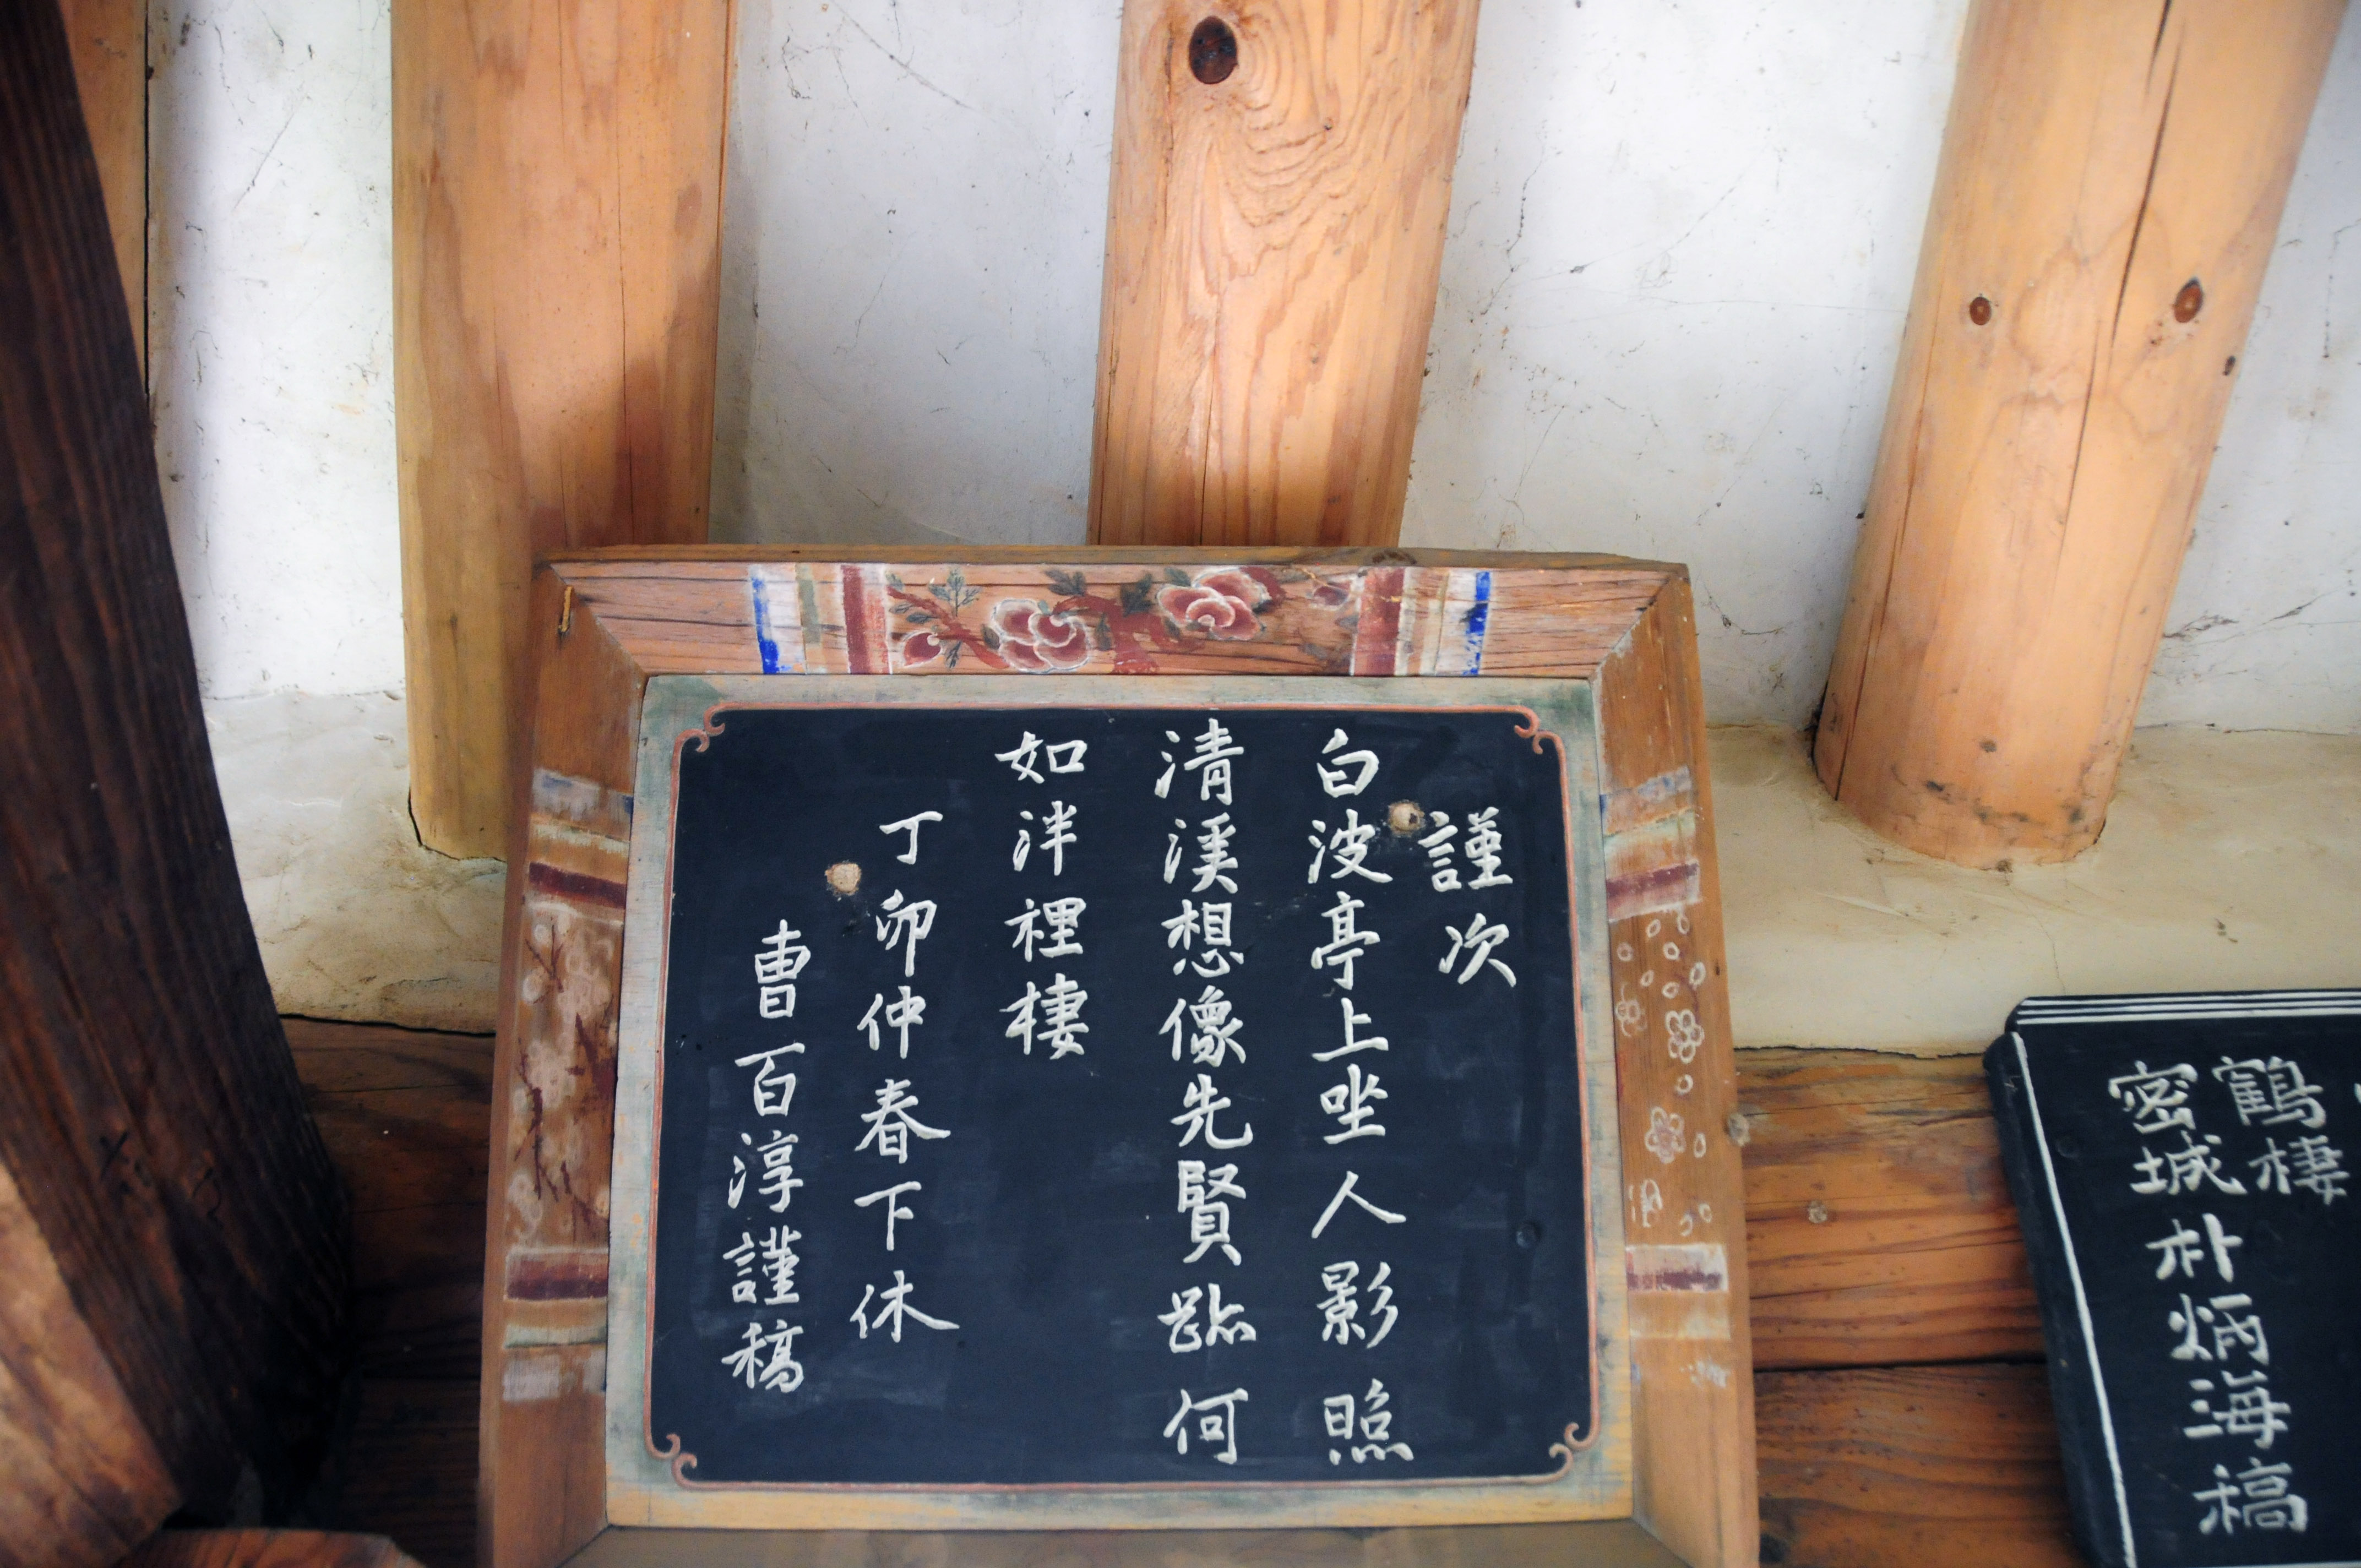 謹次
白波亭上坐人影照
清溪想像先賢趾何
如泮裡棲
丁卯仲春下休
曺百淳謹稿
鶴棲
密城朴炳海稿